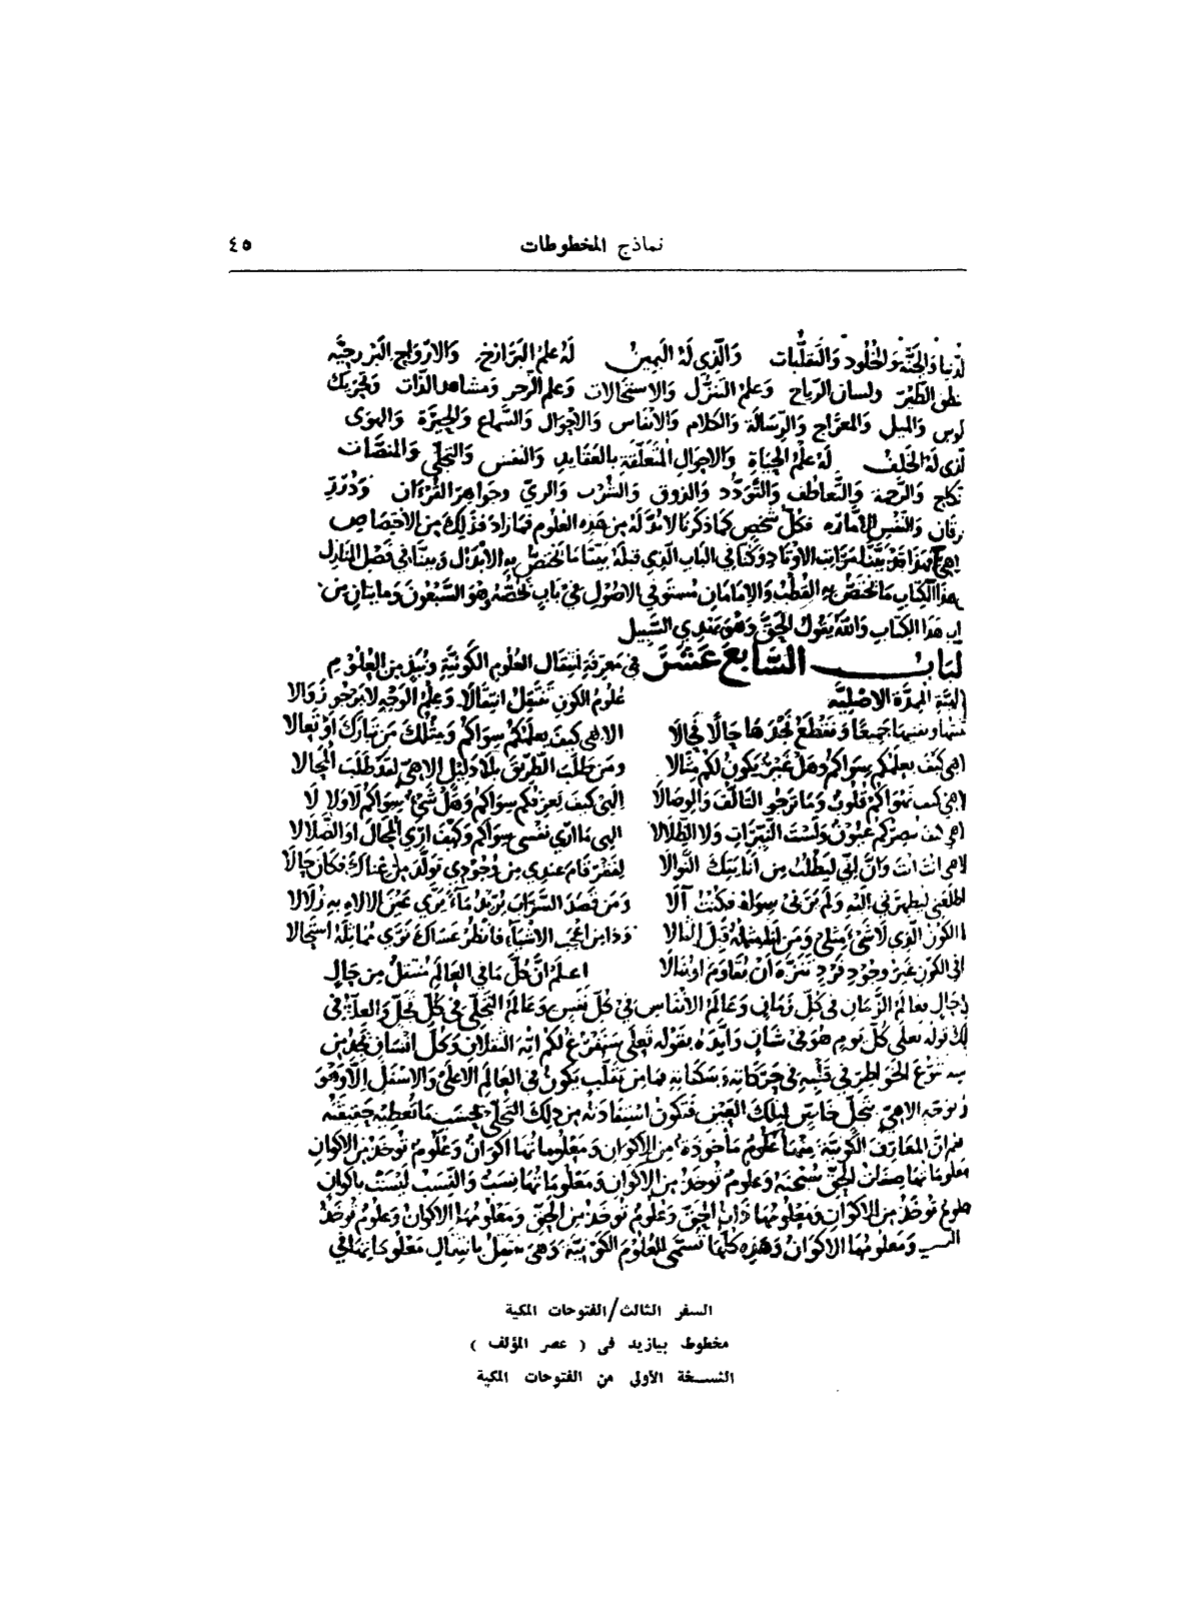 نماذج المخطوطات ٤٥
والجنة والخلود والتقلبات والذي له اليمين له علم البرازخ والارواح البرزخية
نطق الطير ولسان الرياح وعلم التنزل والاستحالات وعلم الزجر ومشاهد الذات وتحريك
والميل والمعراج والرسالة والكلام والانفاس والاحوال والسماع والحيرة والهوى
الذى له الخلف له علم الحياة والاحوال المتعلقة بالعقايد والنفس والتجلي والمنصات
والرحمة والتعاطف والتودد والذوق والشرب والري وجواهر القرءان ودرر
والنفس الامارة فكل شخص كما ذكرنا لابد له من هذه العلوم فما زاد فذلك من الاختصاص
فهذا قد بينا مراتب الاوتاد وكنا في الباب الذي قبله بينا ما يختص به الابدال وبينا في فصل المنازل
هذا الكتاب ما يختص به القطب والامامان مستوفي الاصول في باب يخصه وهو السبعون ومايتان من
هذا الكتاب والله يقول الحق وهو يهدي السبيل
الباب السابع عشر في معرفة انتقال العلوم الكونية ونبذ من العلوم
الالهية الممدة الاصلية علوم الكون تنتقل انتقالا وعلم الوجه لا يرجو زوالا
جميعا ونقطع نجدها حالا فحالا الاهي كيف يعلمكم سواكم ومثلك من تبارك او تعالا
الاهي كيف يعلمكم سواكم وهل غير يكون لكم مثالا ومن طلب الطريق بلا دليل الاهي لقد طلب المحالا
الاهي كيف تهواكم قلوب وما ترجو التالف والوصالا الهي كيف يعرفكم سواكم وهل شيء سواكم لا ولا لا
الاهي كيف تبصركم عيون ولست النيرات ولا الظلالا الهي ما ارى نفسي سواكم وكيف ارى المحال او الضلالا
الاهي انت انت وان اني ليطلب من انايتك النوالا لفقر قام عندي من وجودي تولد من غناك فكان حالا
اطلعني ليظهرني اليه ولم يرني سواه فكنت آلا ومن قصد السراب يريد ماء يرى عين الالاه به زلالا
انا الكون الذي لا شيء مثلي ومن انا مثله قبل المثالا وذا من اعجب الاشياء فانظر عساك ترى مماثله استحالا
الكون غير وجود فرد تنزه ان يقاوم او ينالا اعلم ان كل ما في العالم منتقل من حال
الى حال فعالم الزمان في كل زمان وعالم الانفاس في كل نفس وعالم التجلي في كل تجل والعلة في
ذلك قوله تعلى كل يوم هو في شان وايده بقوله تعلى سنفرغ لكم ايه الثقلان وكل انسان يجد من
تنوع الخواطر في قلبه في حركاته وسكناته فما من تقلب يكون في العالم الاعلى والاسفل الا وهو
توجه الاهي بتجل خاص لتلك العين فتكون استفادته من ذلك التجلي بحسب ما تعطيه حقيقته
ان المعارف الكونية منها علوم ماخوذة من الاكوان ومعلوماتها اكوان وعلوم توخذ من الاكوان
ومعلوماتها صفات الحق سبحنه وعلوم توخذ من الاكوان ومعلوماتها نسب والنسب ليست باكوان
وعلوم توخذ من الاكوان ومعلومها ذات الحق وعلوم توخذ من الحق ومعلومها الاكوان وعلوم توخذ
ومعلومها الاكوان وهذه كلها تسمى العلوم الكونية وهي تنتقل بانتقال معلوماتها في
السفر الثالث/الفتوحات المكية
مخطوط بيازيد فى ( عصر المؤلف )
النسخة الأولى من الفتوحات المكية